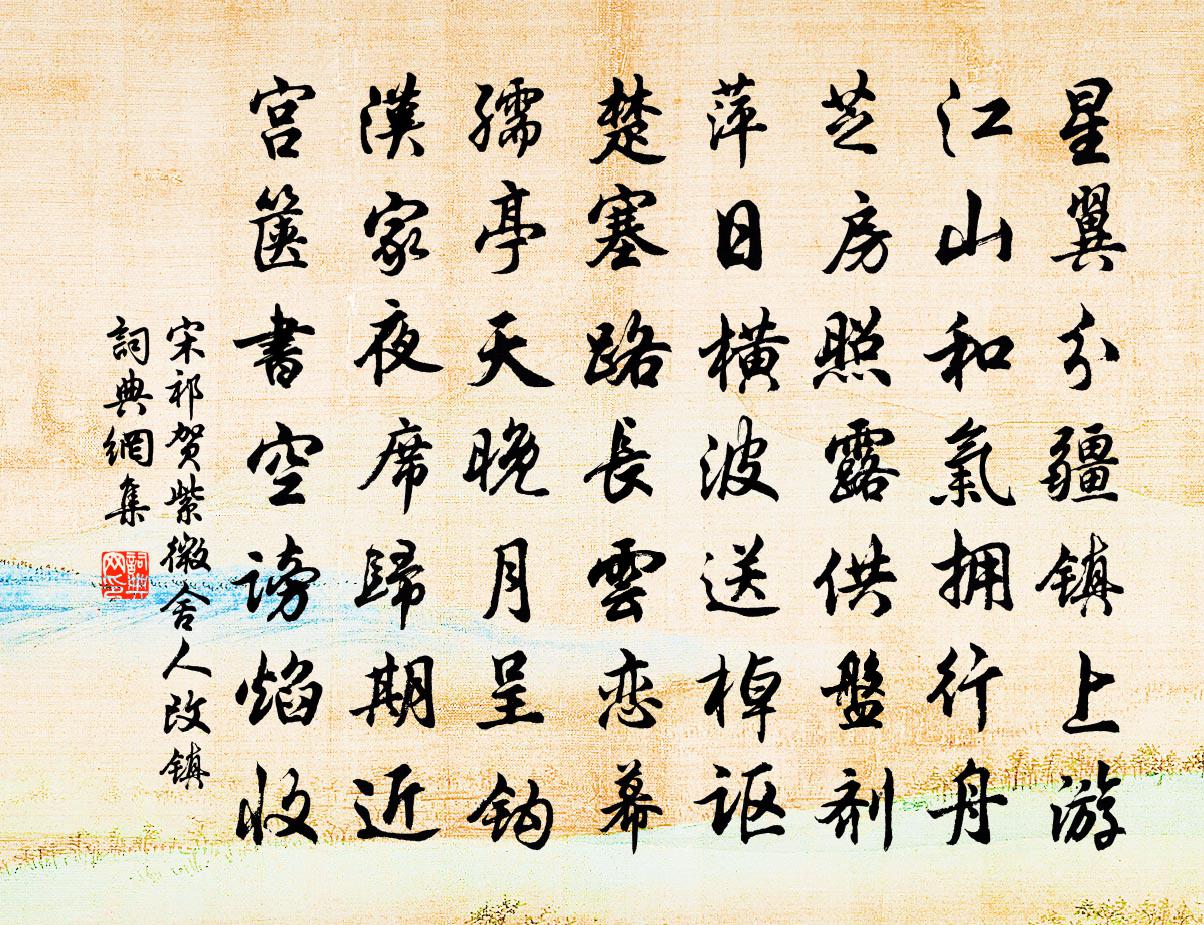 星翼分疆镇上游
江山和氣拥行舟
芝房照露供盤剂
萍日横波送棹讴
楚塞路長雲恋幕
孺亭天晚月呈钩
漢家夜席歸期近
宫箧書空谤焰收
宋祁贺紫微舍人改镇
詞典網集